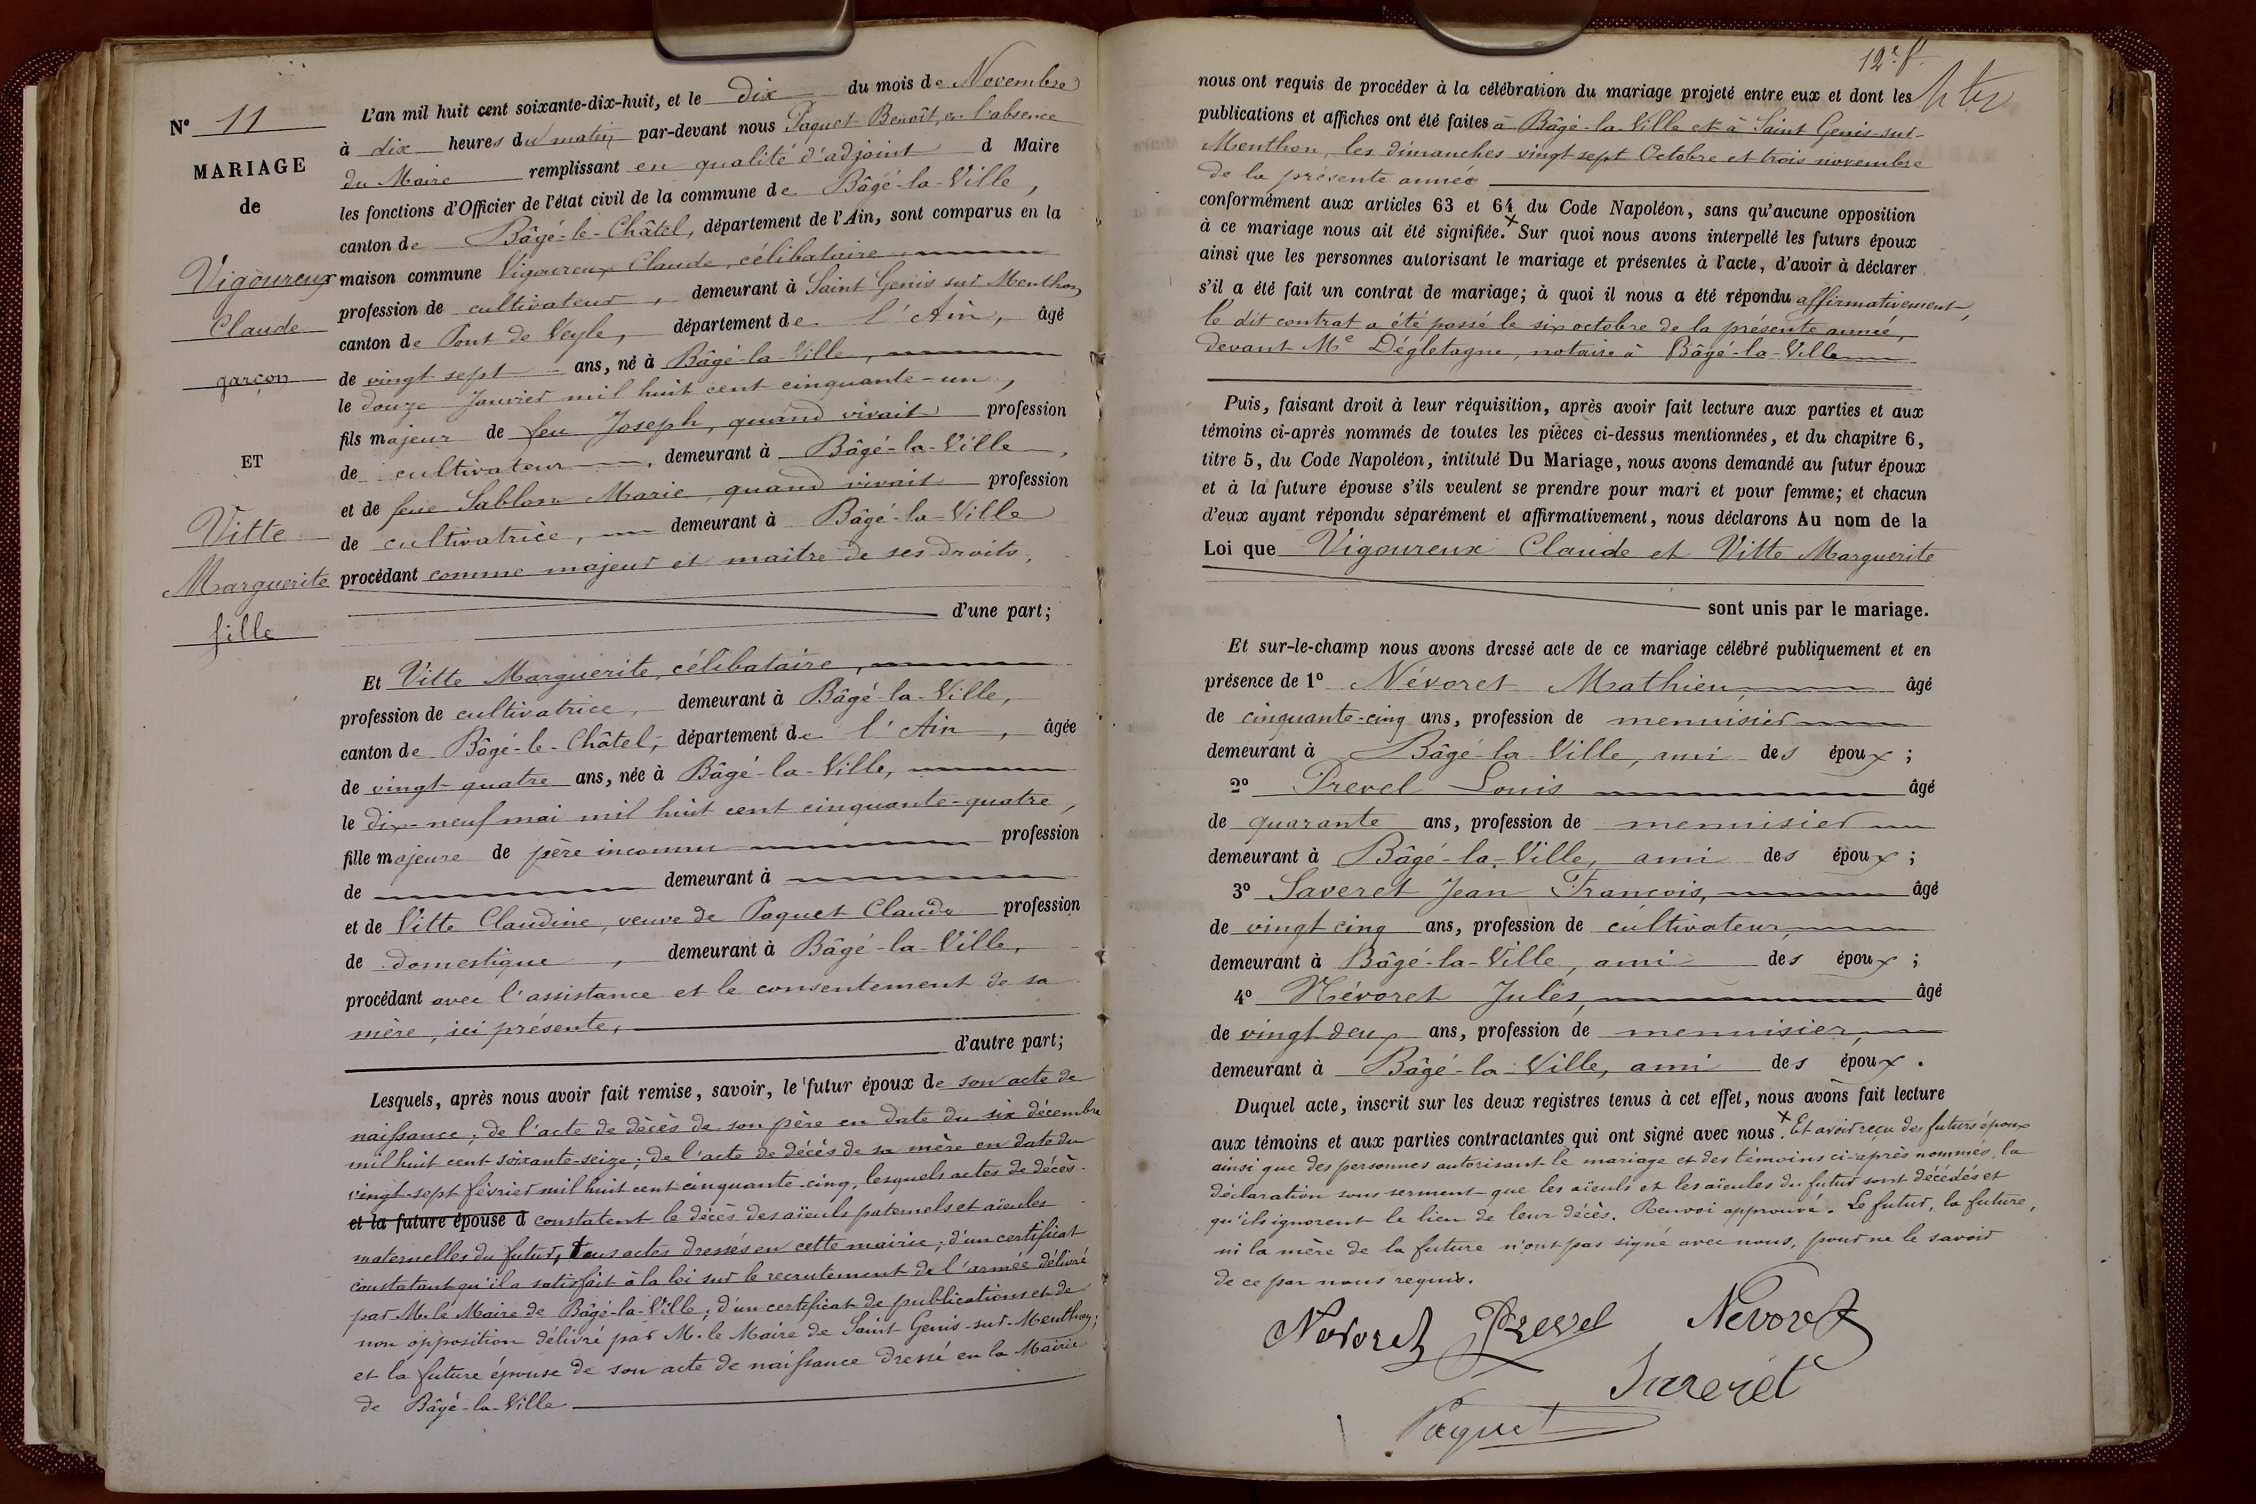 N° 11
MARIAGE
de
Vigoureux
Claude
garçon
ET
Vitte
Marguerite
fille
L'an mil huit cent soixante-dix-huit, et le dix du mois de Novembre
à dix heures du matin par-devant nous Paquet Benoît, en l'absence
du Maire remplissant en qualité d'adjoint d Maire
les fonctions d'Officier de l'état civil de la commune de Bâgé-la-Ville,
canton de Bâgé-le-Châtel, département de l'Ain, sont comparus en la
maison commune Vigoureux Claude, célibataire,
profession de cultivateur, demeurant à Saint Genis sur Menthon
canton de Pont de Veyle, département de l'Ain, âgé
de vingt sept ans, né à Bâgé-la-Ville,
le douze Janvier mil huit cent cinquante-un,
fils majeur de feu Joseph, quand vivait profession
de cultivateur, demeurant à Bâgé-la-Ville,
et de feue Sablon Marie, quand vivait profession
de cultivatrice, demeurant à Bâgé-la-Ville
procédant comme majeur et maître de ses droits,
d'une part;
Et Vitte Marguerite, célibataire,
profession de cultivatrice, demeurant à Bâgé-la-Ville,
canton de Bâgé-le-Châtel, département de l'Ain, âgée
de vingt-quatre ans, née à Bâgé-la-Ville,
le dix-neuf mai mil huit cent cinquante-quatre,
fille majeure de père inconnu profession
de demeurant à
et de Vitte Claudine, veuve de Paquet Claude profession
de domestique, demeurant à Bâgé-la-Ville,
procédant avec l'assistance et le consentement de sa
mère, ici présente,
d'autre part;
Lesquels, après nous avoir fait remise, savoir, le futur époux de son acte de
naissance; de l'acte de décès de son père en date du six décembre
mil huit cent soixante-seize; de l'acte de décès de sa mère en date du
vingt-sept février mil huit cent cinquante-cinq, lesquels actes de décès
et la future épouse d constatent le décès des aïeuls paternels et aïeules
maternelles du futur, tous actes dressés en cette mairie; d'un certificat
constatant qu'il a satisfait à la loi sur le recrutement de l'armée délivré
par M. le Maire de Bâgé-la-Ville; d'un certificat de publications et de
non opposition délivré par M. le Maire de Saint Genis-sur-Menthon;
et la future épouse de son acte de naissance dressé en la Mairie
de Bâgé-la-Ville
12e f.
nous ont requis de procéder à la célébration du mariage projeté entre eux et dont les
publications et affiches ont été faites à Bâgé-la-Ville et à Saint Genis-sur-
Menthon, les dimanches vingt-sept Octobre et trois novembre
de la présente année
conformément aux articles 63 et 64 du Code Napoléon, sans qu'aucune opposition
à ce mariage nous ait été signifiée.× Sur quoi nous avons interpellé les futurs époux
ainsi que les personnes autorisant le mariage et présentes à l'acte, d'avoir à déclarer
s'il a été fait un contrat de mariage; à quoi il nous a été répondu affirmativement,
le dit contrat a été passé le six octobre de la présente année,
devant Me Dégletagne, notaire à Bâgé-la-Ville
Puis, faisant droit à leur réquisition, après avoir fait lecture aux parties et aux
témoins ci-après nommés de toutes les pièces ci-dessus mentionnées, et du chapitre 6,
titre 5, du Code Napoléon, intitulé Du Mariage, nous avons demandé au futur époux
et à la future épouse s'ils veulent se prendre pour mari et pour femme; et chacun
d'eux ayant répondu séparément et affirmativement, nous déclarons Au nom de la
Loi que Vigoureux Claude et Vitte Marguerite
sont unis par le mariage.
Et sur-le-champ nous avons dressé acte de ce mariage célébré publiquement et en
présence de 1° Névoret Mathieu, âgé
de cinquante-cinq ans, profession de menuisier
demeurant à Bâgé-la-Ville, ami des époux;
2° Prevel Louis âgé
de quarante ans, profession de menuisier
demeurant à Bâgé-la-Ville, ami des époux;
3° Saveret Jean François, âgé
de vingt cinq ans, profession de cultivateur,
demeurant à Bâgé-la-Ville, ami des époux;
4° Névoret Jules, âgé
de vingt deux ans, profession de menuisier,
demeurant à Bâgé-la-Ville, ami des époux.
Duquel acte, inscrit sur les deux registres tenus à cet effet, nous avons fait lecture
aux témoins et aux parties contractantes qui ont signé avec nous.× Et avoir reçu des futurs époux
ainsi que des personnes autorisant le mariage et des témoins ci-après nommés, la
déclaration sous serment que les aïeuls et les aïeules du futur sont décédés et
qu'ils ignorent le lieu de leur décès. Renvoi approuvé. Le futur, la future,
ni la mère de la future n'ont pas signé avec nous, pour ne le savoir
de ce par nous requis.
Nevoret Prevel Nevoret
Saveret
Paquet